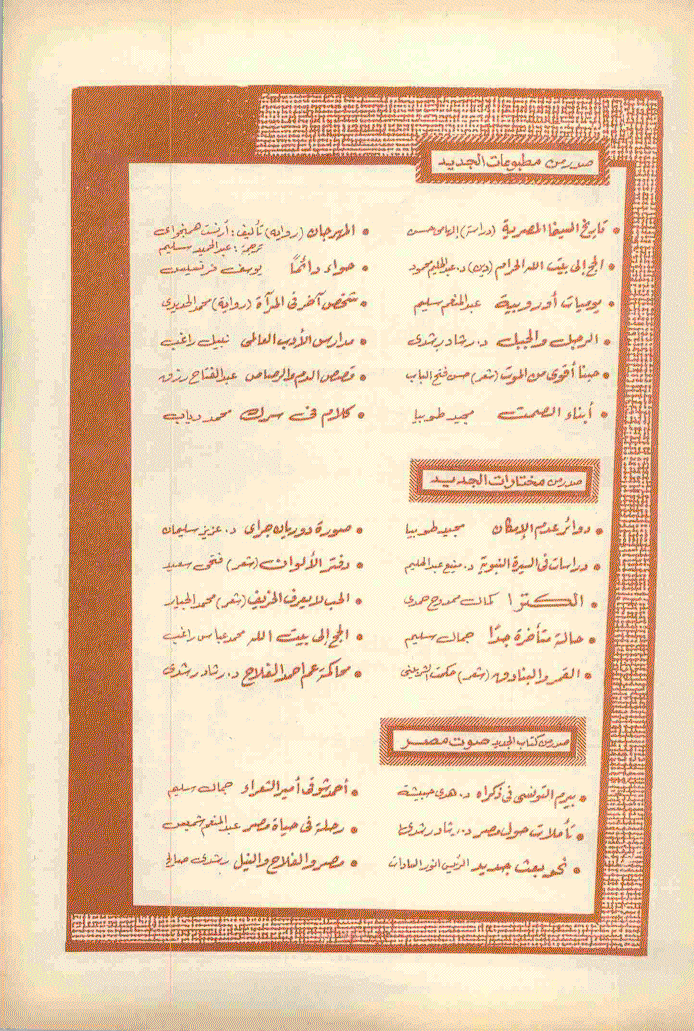 صدر من مطبوعات الجديد
• تاريخ السينما المصرية (دراسة) إلهامى حسن
• الحج إلى بيت الله الحرام (دين) د. عبد الحليم محمود
• يوميات أوروبية عبد المنعم سليم
• الرجل والجبل د. رشاد رشدى
• حبنا أقوى من الموت (شعر) حسن فتح الباب
• أبناء الصمت مجيد طوبيا
• المهرجان (رواية) تأليف: أرنست همنجواى
ترجمة: عبد الحميد سليم
• حواء دائمًا يوسف فرنسيس
• شخص آخر فى المرآة (رواية) محمد الحديدى
• مدارس الأدب العالمى نبيل راغب
• قصص الدم والرصاص عبد الفتاح رزق
• كلام فى سرك محمد دياب
صدر من مختارات الجديد
• دوائر عدم الإمكان مجيد طوبيا
• دراسات فى السيرة النبوية د. منيع عبد الحليم
• الكترا كمال ممدوح حمدى
• حالة متأخرة جدًا جمال سليم
• القمر والبنادق (شعر)
• صورة دوريان جراى د. عزيز سليمان
• دفتر الألوان (شعر) فتحى سعيد
• الحب لا يعرف الخريف (شعر) محمد الخيار
• الحج إلى بيت الله محمد عباس راغب
• محاكمة عم أحمد الفلاح د. رشاد رشدى
صدر من كتاب الجديد صوت مصر
• بيرم التونسى فى ذكراه د. هدى حبيشة
• تأملات حول مصر د. رشاد رشدى
• نحو بعث جديد الرئيس أنور السادات
• أحمد شوقى أمير الشعراء جمال سليم
• رحلة فى حياة مصر عبد المنعم شميس
• مصر والفلاح والنيل رشدى صالح